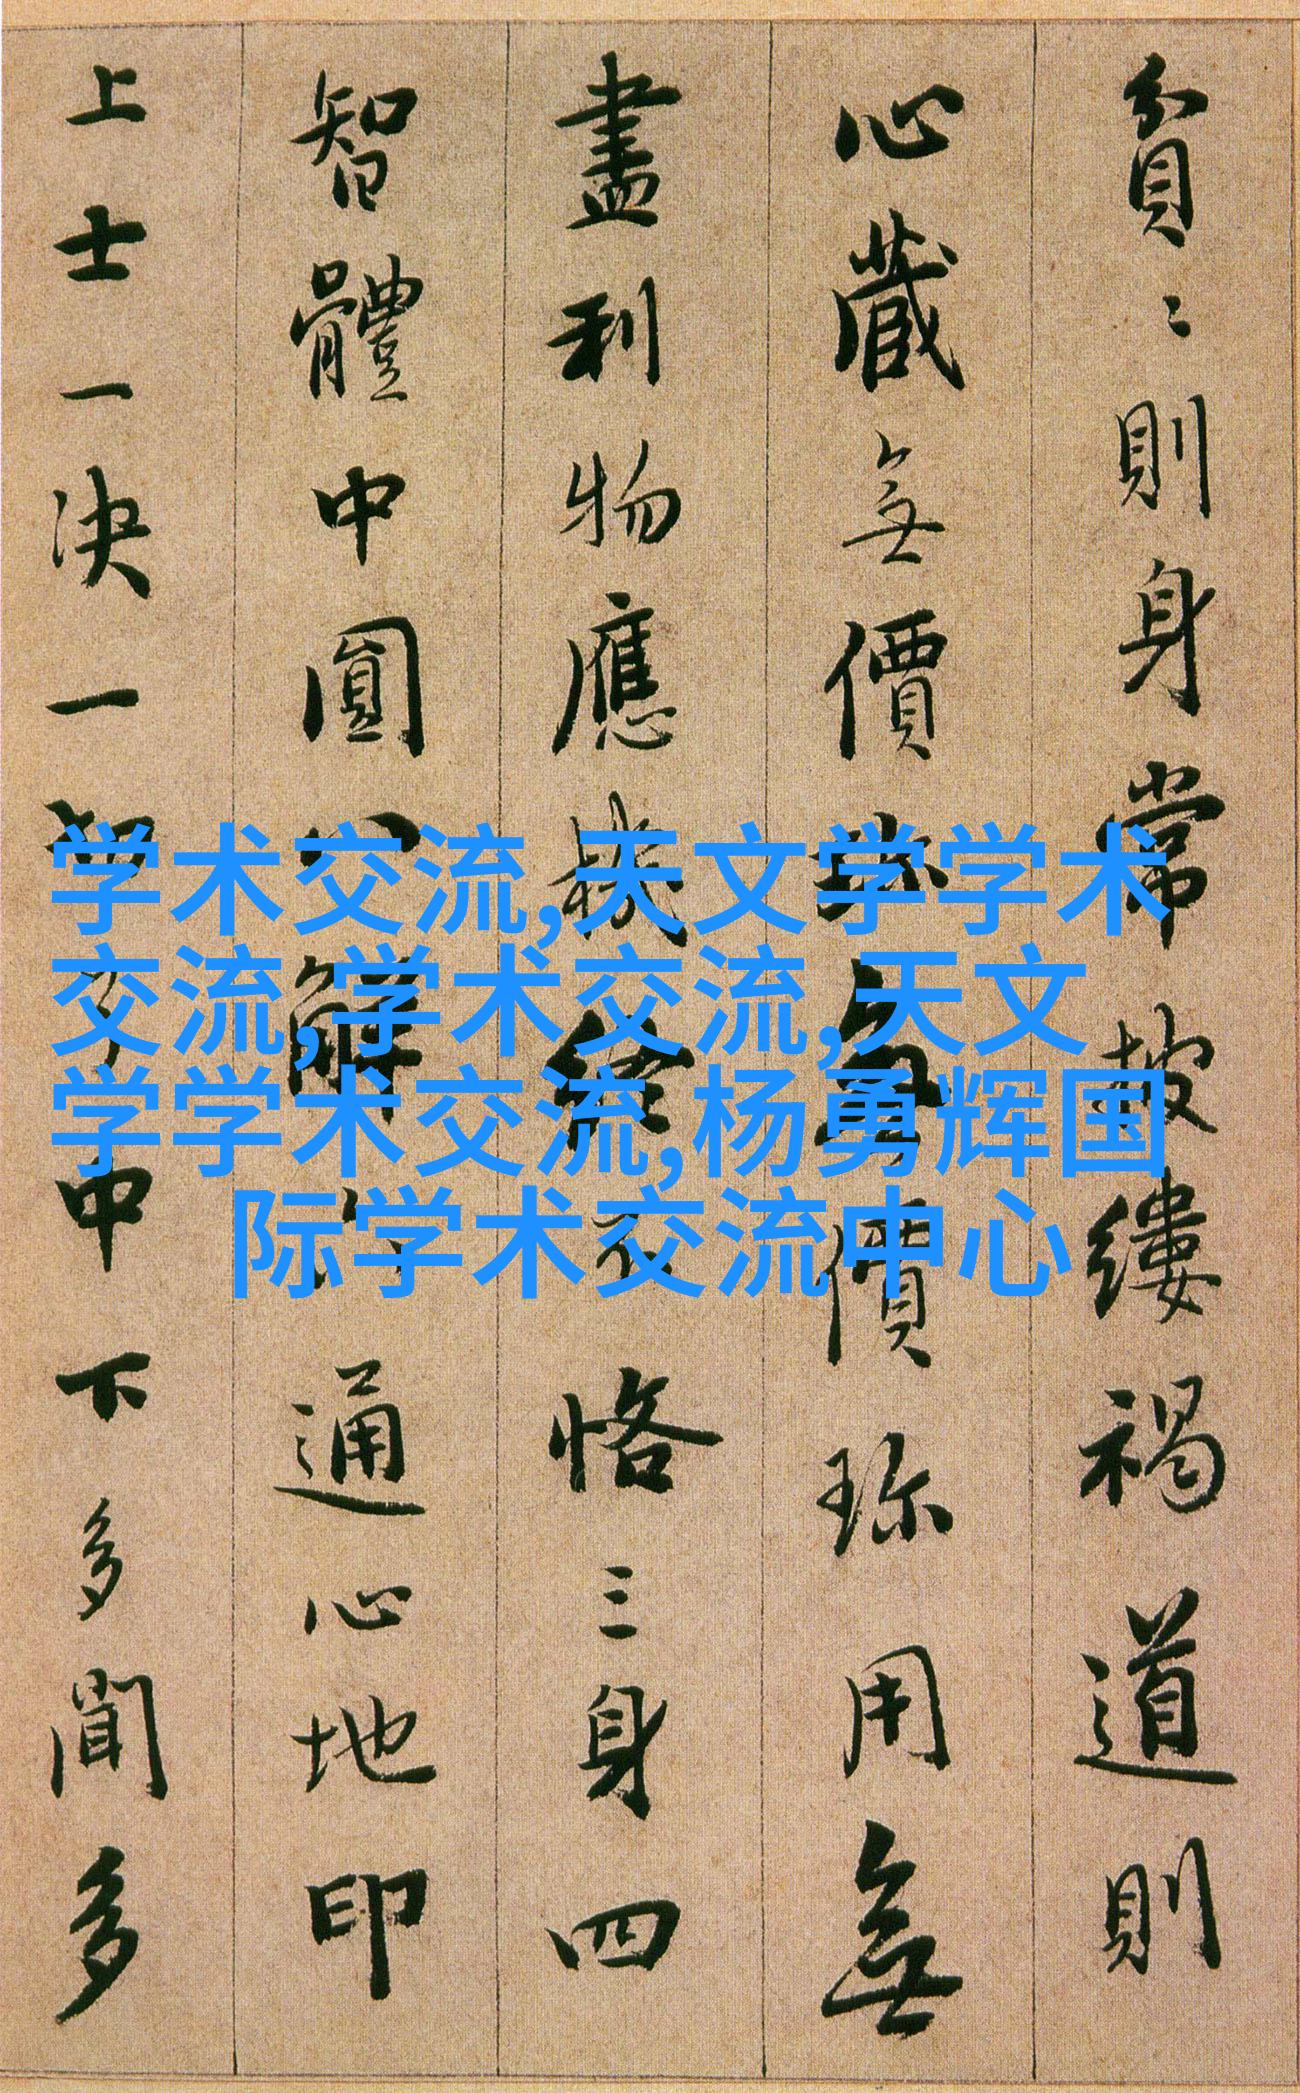 貧〻則身常披縷褐道則
心藏無價珎無價珎用無
盡利物應機終不恪三身四
智體中圓八解六通心地印
上士一决一切中下多聞多
学术交流,天文学学术
交流,学术交流,天文
学学术交流,杨勇辉国
际学术交流中心